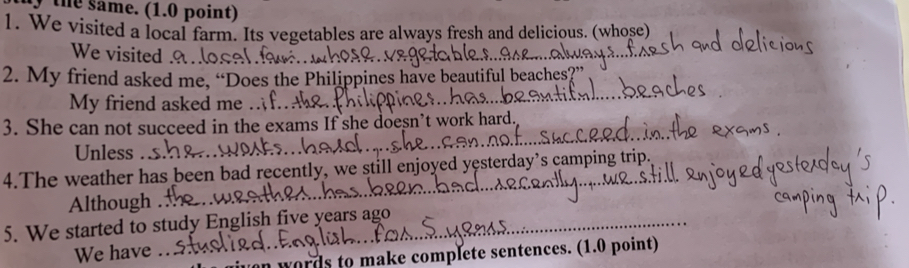 the same. (1.0 point)
1. We visited a local farm. Its vegetables are always fresh and delicious. (whose)
We visited a local farm whose vegetables are always fresh and delicious
2. My friend asked me, “Does the Philippines have beautiful beaches?”
My friend asked me if the Philippines has beautiful beaches.
3. She can not succeed in the exams If she doesn't work hard.
Unless she works hard, she can not succeed in the exams.
4.The weather has been bad recently, we still enjoyed yesterday's camping trip.
Although the weather has been bad recently, we still enjoyed yesterday's camping trip.
5. We started to study English five years ago
We have studied English for 5 years
given words to make complete sentences. (1.0 point)